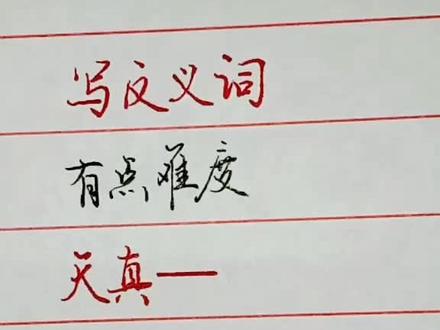 写反义词
有点难度
天真——